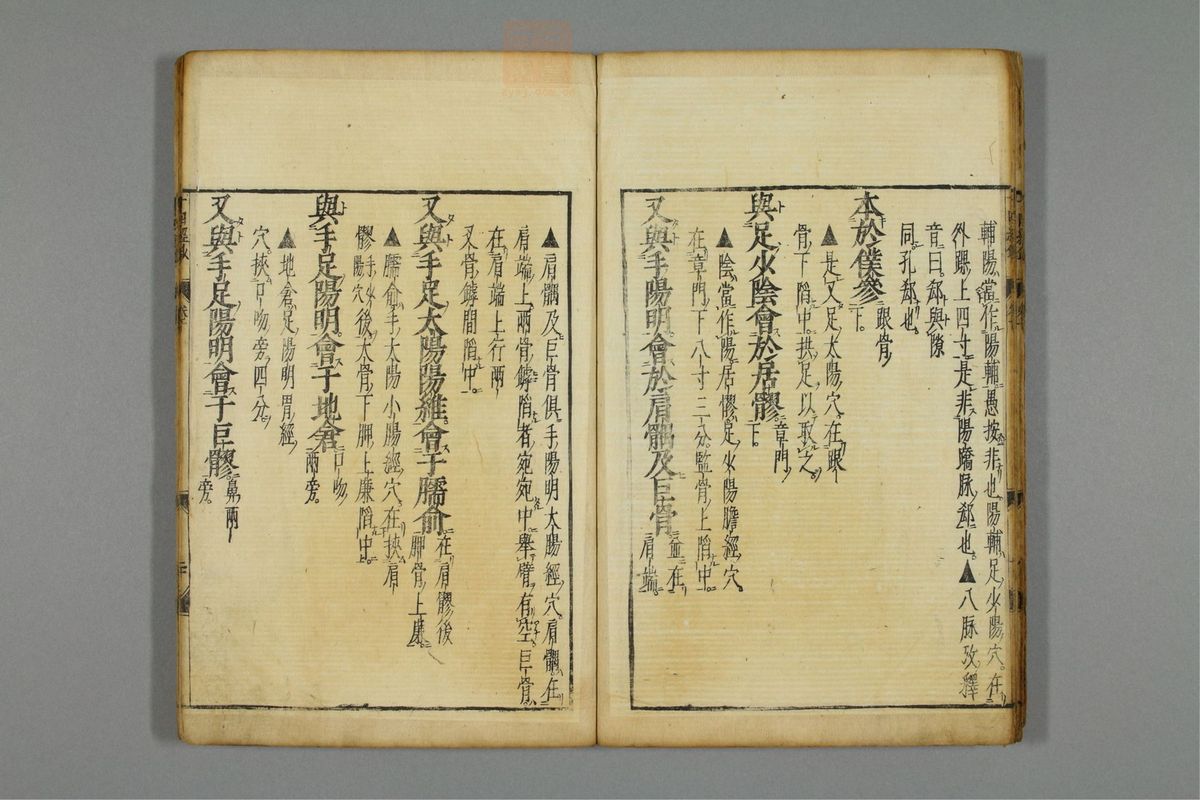 輔陽當作陽輔愚按非也陽輔足少陽穴在
外踝上四寸是非陽蹻脉郄也▲八脉攷釋
音曰郄與隙
同孔郄也
本於僕參跟骨下
▲是又足太陽穴在跟
骨下陷中拱足以取之
與足少陰會於居髎章門下
▲陰當作陽居髎足少陽膽經穴
在章門下八寸三分監骨上陷中
又與手陽明會於肩髃及巨骨並在肩端
▲肩髃及巨骨俱手陽明大腸經穴肩髃在
肩端上兩骨罅陷者宛宛中舉臂有空巨骨
在肩端上行兩
叉骨罅間陷中
又與手足太陽陽維會于臑俞在肩髎後胛骨上廉
▲臑俞手太陽小腸經穴在挾肩
髎手少陽穴後大骨下胛上廉陷中
與手足陽明會于地倉口吻兩旁
▲地倉足陽明胃經
穴挾口吻旁四分
又與手足陽明會于巨髎鼻兩旁